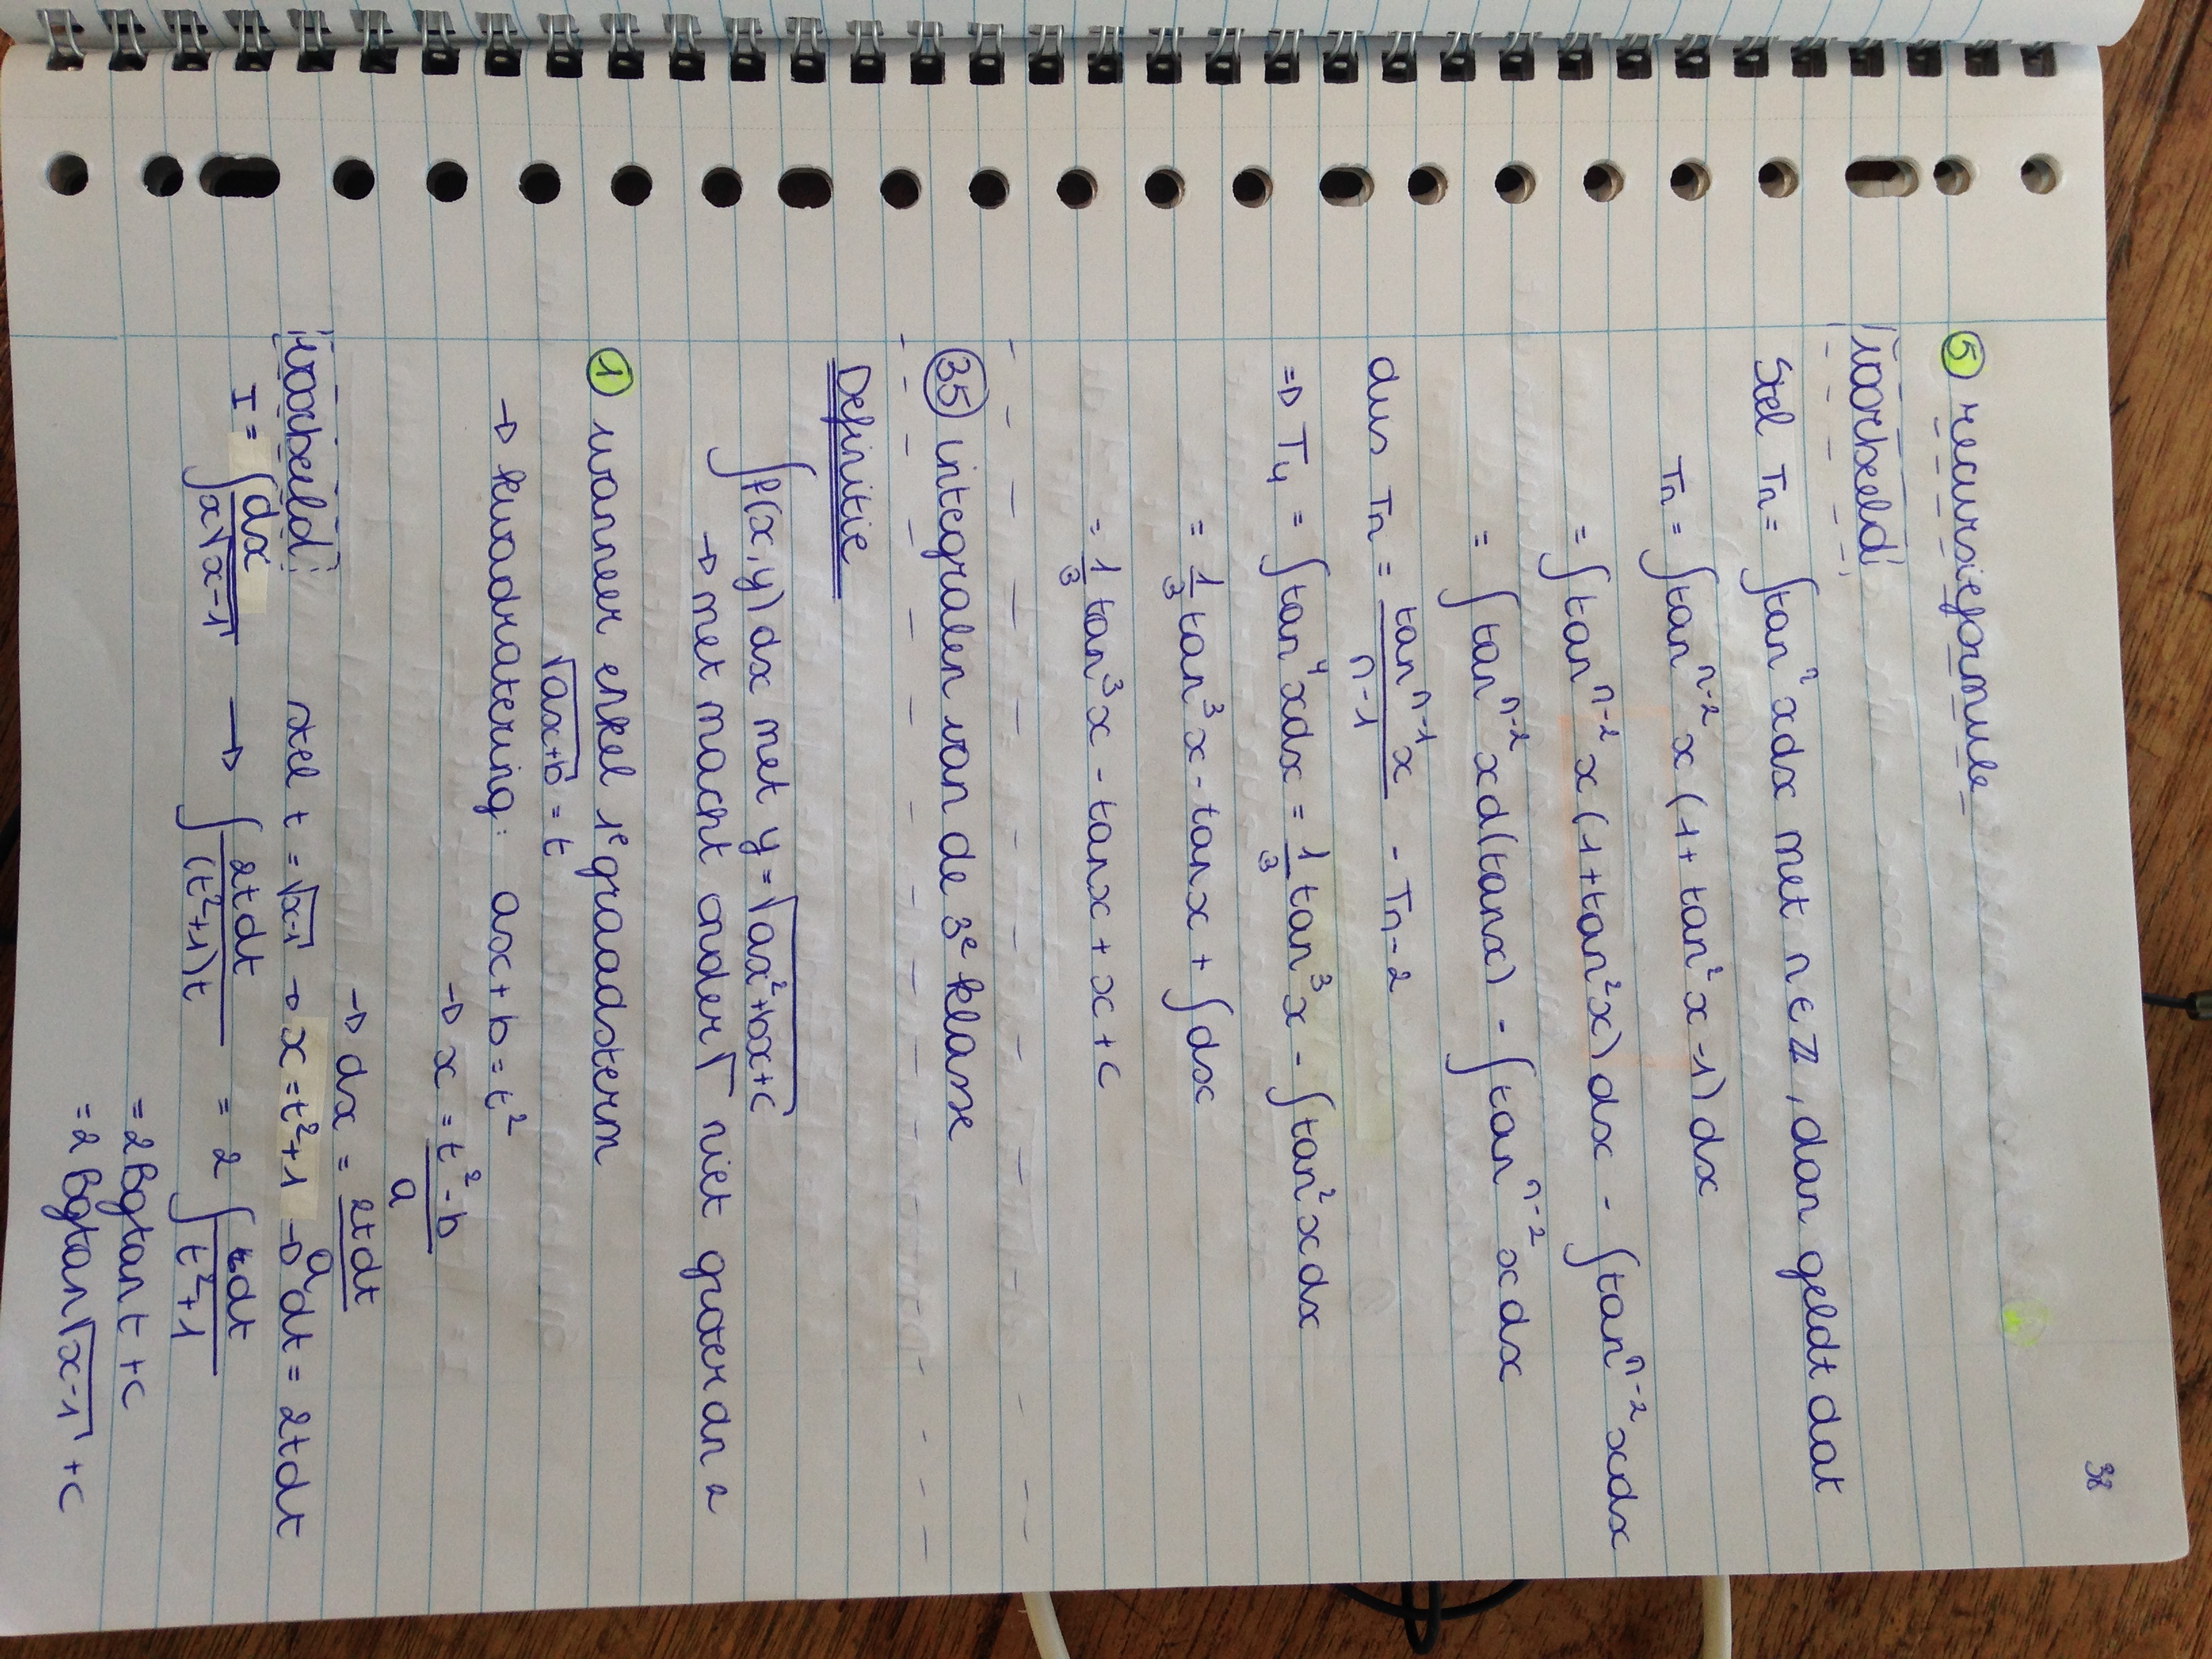 38
5 recursieformule
voorbeeld
Stel Tn = ∫tanⁿxdx met n ∈ ℤ, dan geldt dat
Tn = ∫tanⁿ⁻²x (1 + tan²x - 1) dx
= ∫tanⁿ⁻²x (1 + tan²x) dx - ∫tanⁿ⁻²xdx
= ∫tanⁿ⁻²xd(tanx) - ∫tanⁿ⁻²xdx
dus Tn = tanⁿ⁻¹x / n-1 - Tn-2
=> T₄ = ∫tan⁴xdx = 1/3 tan³x - ∫tan²xdx
= 1/3 tan³x - tanx + ∫dx
= 1/3 tan³x - tanx + x + c
35 integralen van de 3e klasse
Definitie
∫f(x,y) dx met y = √ax²+bx+c
→ met macht onder √ niet groter dn 2
1 wanneer enkel 1e graadsterm
√ax+b = t
→ kwadratering: ax + b = t²
→ x = t² - b / a
→ dx = 2tdt / a
voorbeeld stel t = √x-1 → x = t²+1 → dt = 2tdt
I = ∫dx / x√x-1 → ∫2tdt / (t²+1)t = 2∫dt / t²+1
= 2Bgtan t + c
= 2Bgtan√x-1 + c